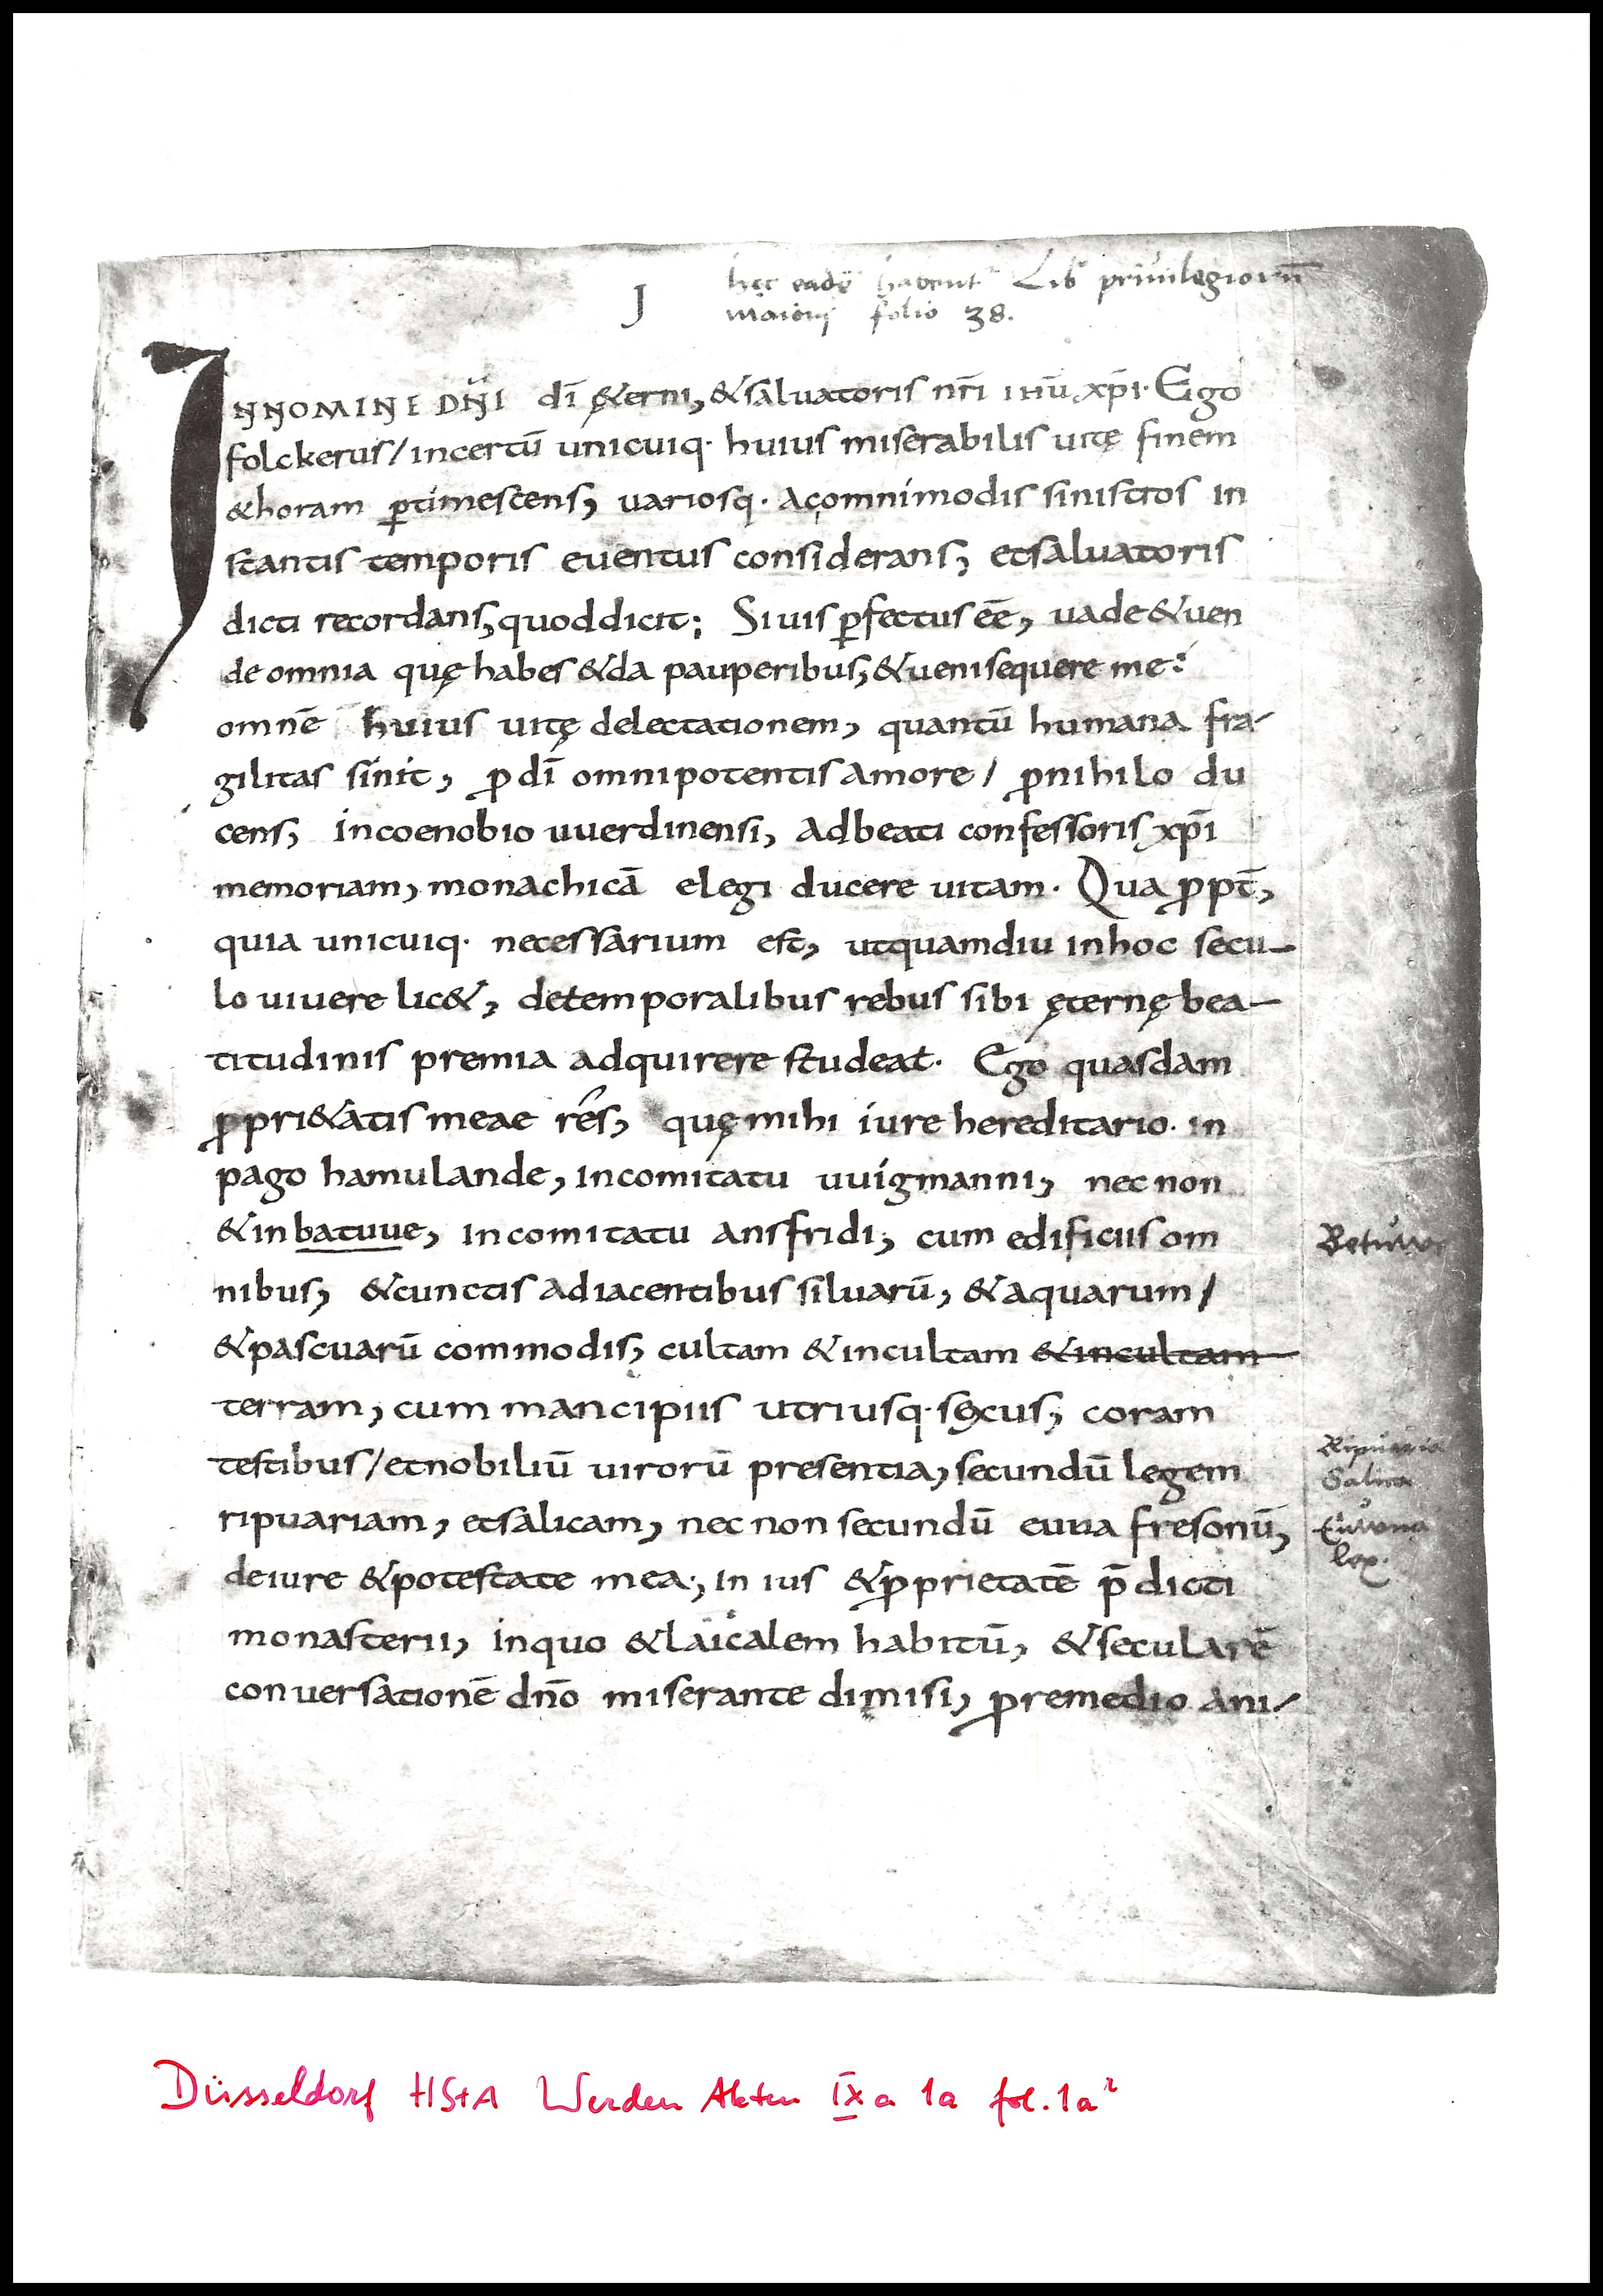 J
hęc eadē habent᷑ Lib᷑ priuilegiorū
maiori folio 38.
INNOMINE DN̄I dī &erni, &saluatoris nr̄i ihū xp̄i· Ego
folckerus/ incertū unicuiq· huius miserabilis uitę finem
&horam ꝑtimescens, uariosq· acomnimodis sinistros in
stantis temporis euentus considerans, etsaluatoris
dicti recordans, quoddicit; Siuis ꝑfectus eē, uade&uen
de omnia quę habes &da pauperibus, &uenisequere me:
omnē huius uitę delectationem, quantū humana fra-
gilitas sinit, ꝓ dī omnipotentis amore/ ꝓnihilo du
cens, incoenobio uuerdinensi, adbeati confessoris xp̄i
memoriam, monachicā elegi ducere uitam· Qua ꝓpt̄,
quia unicuiq· necessarium est, utquamdiu inhoc secu-
lo uiuere lic&, detemporalibus rebus sibi ęternę bea-
titudinis premia adquirere studeat· Ego quasdam
ꝓpri&atis meae res, quę mihi iure hereditario· in
pago hamulande, incomitatu uuigmanni, nec non
&in batuue, incomitatu ansfridi, cum edificiis om
nibus, &cunctis adiacentibus siluarū, &aquarum/
&pascuarū commodis, cultam &incultam &incultam
terram, cum mancipiis utriusq· sexus, coram
testibus/ etnobiliū uirorū presentia, secundū legem
ripuariam, etsalicam, nec non secundū euua fresonū,
deiure &potestate mea·, in ius &ꝓprietatē p̄dicti
monasterii, inquo &laicalem habitū, &secularē
conuersationē dn̄o miserante dimisi, ꝓremedio ani-
Betuwe
Ripuaria
Salica
Euuona
lex.
Düsseldorf HStA Werden Akten IX a 1a fol. 1aʳ